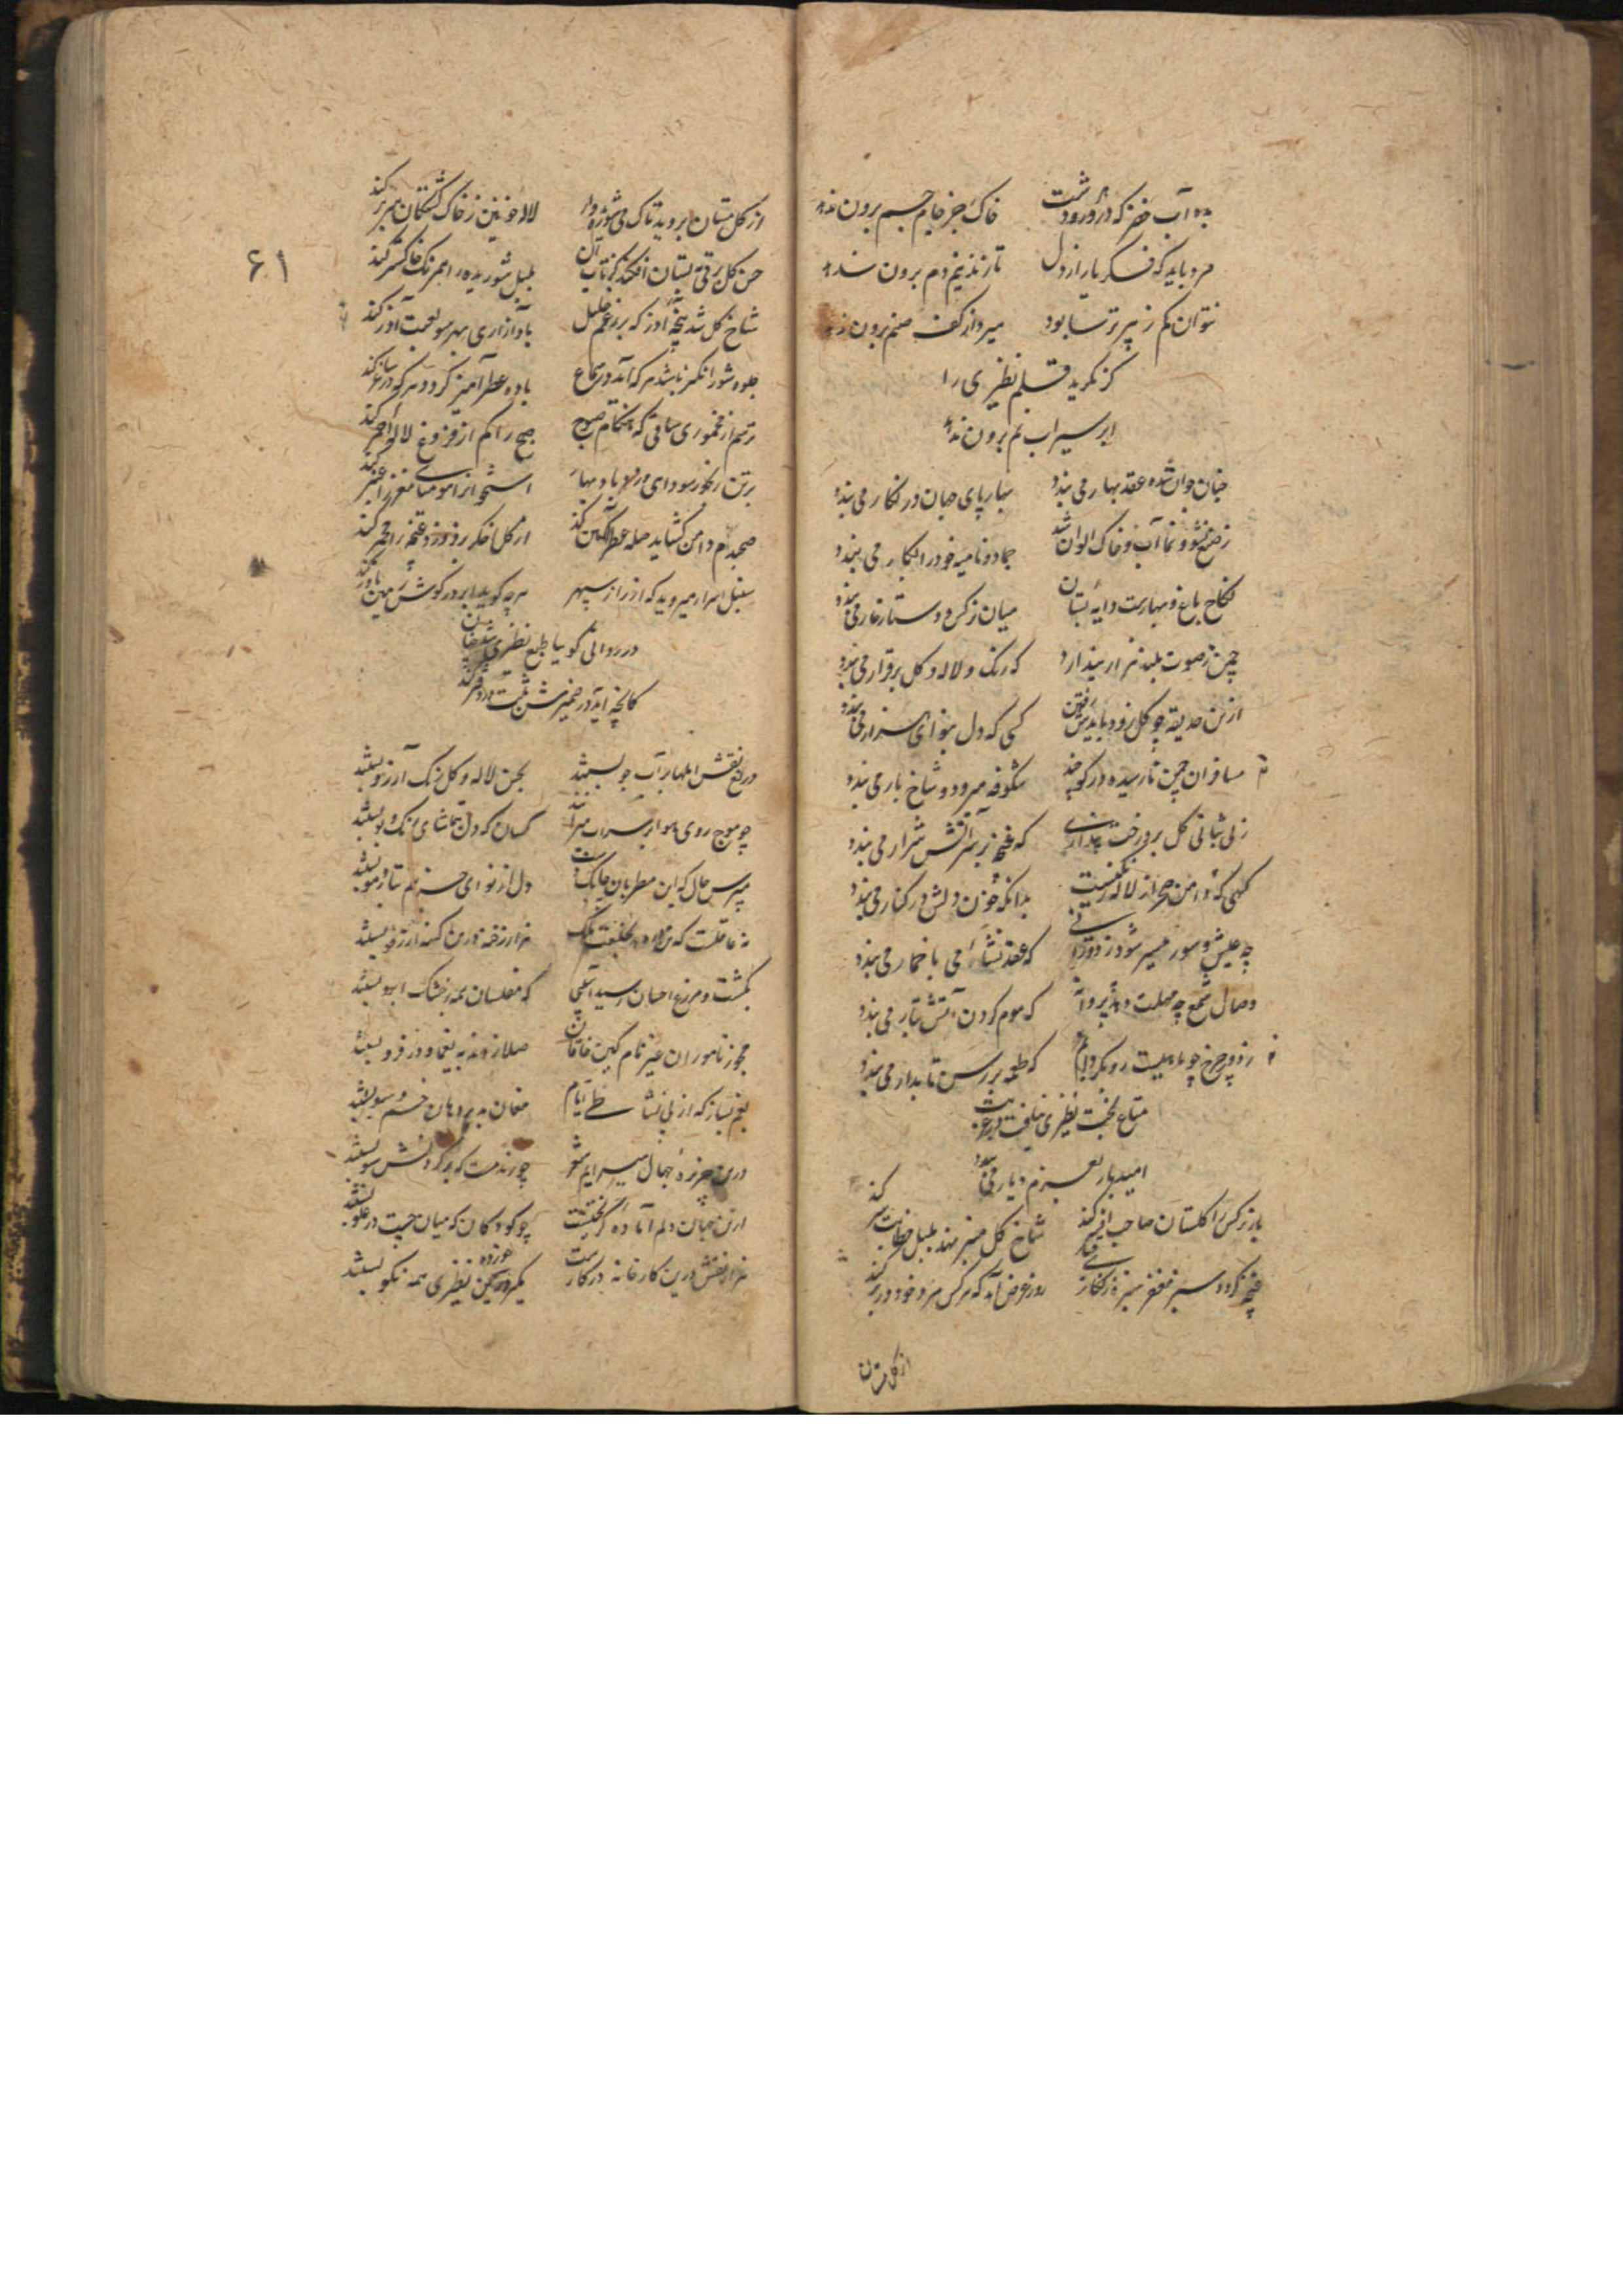 بده آب خضر که در دورت
خاک جز جام جم برون ندهد
مرد باید که فکر یار از دل
تا زند نیم دم برون ندهد
نتوان کم ز پیر ترسا بود
میرد از کف صنم برون ندهد
گر نگرید قلم نظیری را
ابر سیراب نم برون ندهد
جهان جوان شده عقد بهار می بندد
بهار پای جهان در نگار می بندد
ز صنع نشو و نما آب و خاک الوان شد
جماد و نامیه خود را بکار می بندد
نکاح باغ و بهارست دایه بستان
میان نرگس و دستار خار می بندد
چمن ز صوت بلند هزار پندارد
که رنگ و لاله و گل برقرار می بندد
ازین حدیقه چو گل زود بایدش رفتن
کسی که دل بنوای هزار می بندد
مسافران چمن نارسیده در کوچند
شگوفه میرود و شاخ بار می بندد
ز بی ثباتی گل بر درخت پنداری
که غنچه بر سر آتش شرار می بندد
کهی که دامن صحرا ز لاله رنگینست
بدانکه خون دلش در کنار می بندد
چه عیش و سور میسر شود ز دورانی
که عقد نشاه می با خمار می بندد
وصال شمع چه مهلت دهد به پروانه
که موم کردن آتش بتار می بندد
ز دور چرخ چو ماهیست رو بگردابم
که طعمه بر رسن تابدار می بندد
متاع بخت نظیری
امید بار بعزم دیار می بندد
باز نرگس را گلستان صاحب افسر کند
شاخ گل منبر نهد بلبل خطابت سر کند
غنچه گردد سبز مغفر سبزه
روز عرض آمد که هر کس مرد خود در بر کند
از گل مستان
۶۱
از گل مستان بروید تاک می شوریده وار
لاله خونین ز خاک کشتگان سر بر کند
حسن گل برقی به بستان افکند کز تاب آن
بلبل شوریده را همرنگ خاکستر کند
شاخ گل شد پنجه آذر که بر زعم خلیل
باد آزاری بهر سو لعبت آذر کند
جلوه شور انگیز باشد هر که آید در سماع
باده عطر آمیز گردد هر که در ساغر کند
ترسم از مخموری ساقی که هنگام صبوح
صبح را کم از فروغ لاله احمر کند
برتن رنجور سودای
استخوان را مومیا مغز را عنبر کند
صبحدم دامن گشاید حله عطر آگین کند
از گل اخگر فروزد غنچه را مجمر کند
سنبل اسرار میروید که از راز سپهر
هرچه گوید ابر در گوش زمین باور کند
در روانی گوییا طبع نظیری شد خزان
کانچه آید در ضمیرش ثبت در دفتر کند
دریغ نقش املها بر آب جو بستند
بحسن لاله و گل رنگ آرزو بستند
چو موج روی هوا بر سراب میراند
کسان که دل بتماشای رنگ و بو بستند
مپرس حال که این مطربان چابک دست
دل از نوای حزینم بتار مو بستند
نه عاقلست که نازد بخلعت ملک
هزار رخنه درین کهنه از رفو بستند
بکشت و مزرع احسان رسید آفتی
که مفلسان همه بر خشک آبرو بستند
مجو ز ناموران غیر نام کین خاقان
صلا زدند به یغما و در فرو بستند
بغم بساز که از بی نشاطی ایام
مغان به پیرهان خم و سبو بستند
درین جزیره بجان سیرایم
چو رندمست که بر گردنش سبو بستند
ازین جهان دلم آماده گریختنست
چو کودکان که میان چست در غلو بستند
هزار نقش درین کارخانه در کارست
مگیر خورده نظیری همه نکو بستند